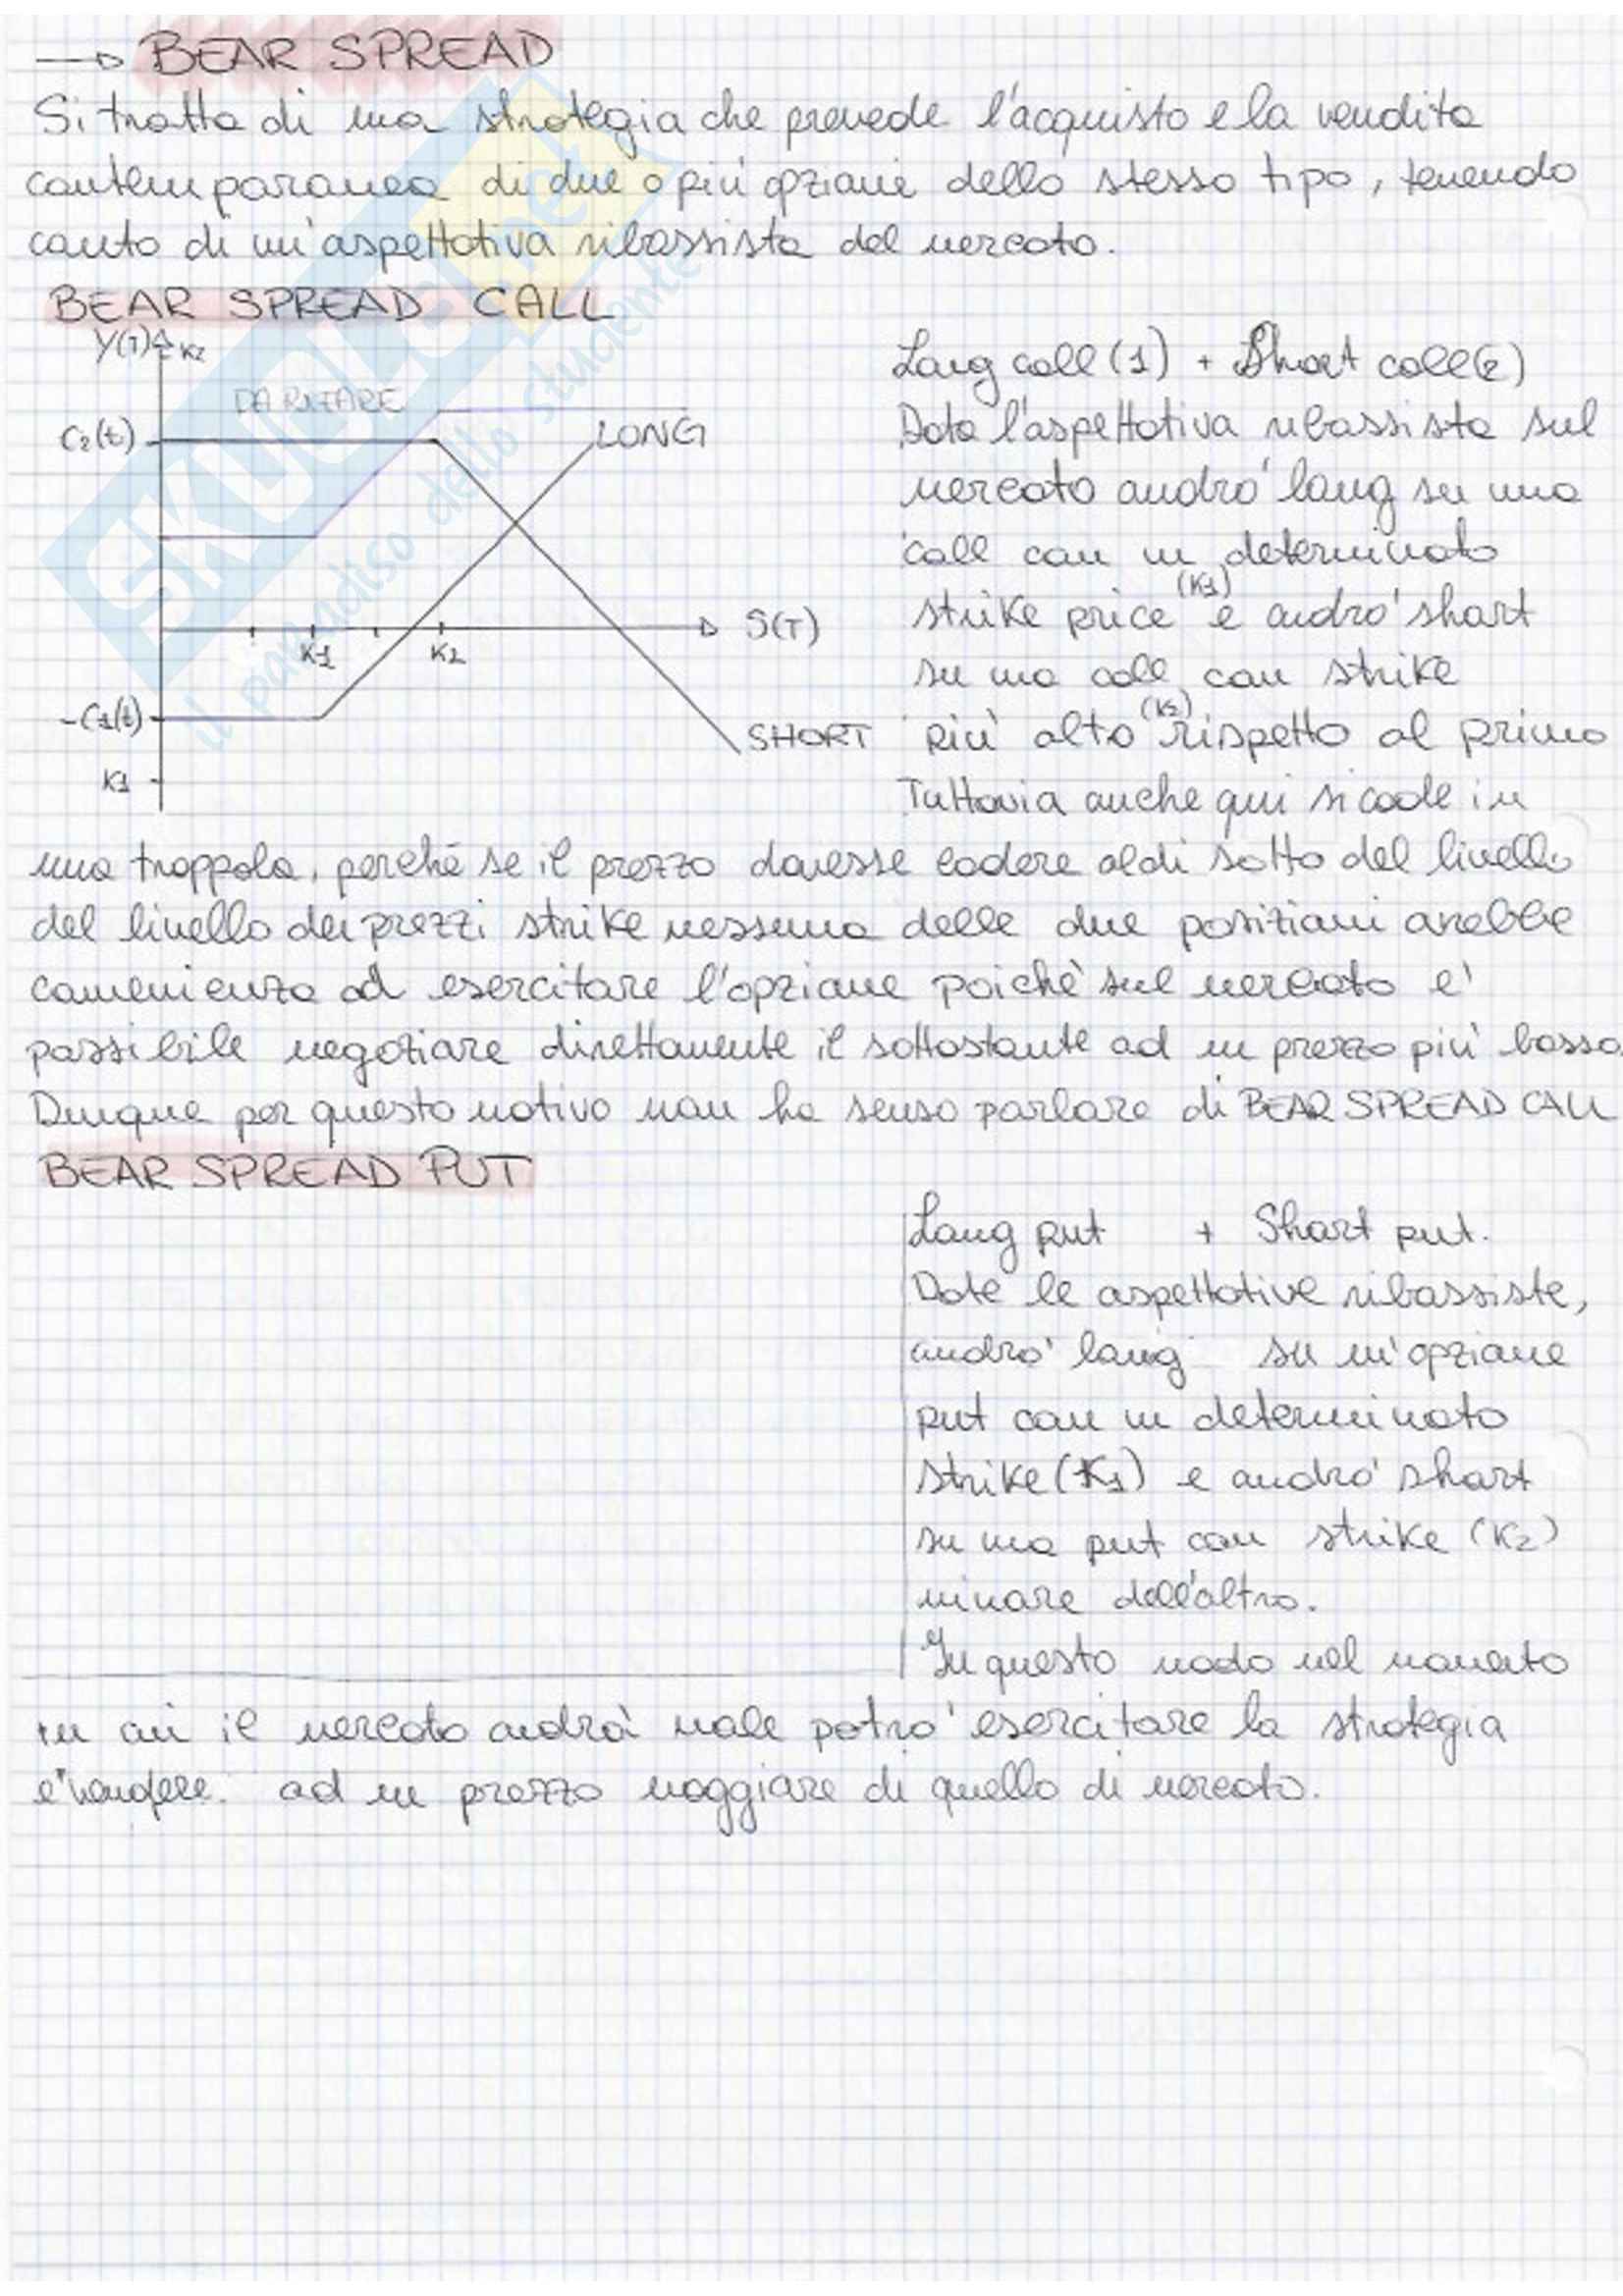 → BEAR SPREAD
Si tratta di una strategia che prevede l'acquisto e la vendita
contemporanea di due o più opzioni dello stesso tipo, tenendo
conto di un'aspettativa ribassista del mercato.
BEAR SPREAD CALL
Y(T) K2
DA RIFARE
C2(t)
LONG
S(T)
K1 K2
-C1(t)
SHORT
K1
Long call (1) + Short call (2)
Data l'aspettativa ribassista sul
mercato andrò long su una
call con un determinato
strike price (K1) e andrò short
su una call con strike
più alto (K2) rispetto al primo
Tuttavia anche qui si cade in
una trappola, perché se il prezzo dovesse cadere al di sotto del livello
del livello dei prezzi strike nessuna delle due posizioni avrebbe
convenienza ad esercitare l'opzione poiché sul mercato è
possibile negoziare direttamente il sottostante ad un prezzo più basso.
Dunque per questo motivo non ha senso parlare di BEAR SPREAD CALL
BEAR SPREAD PUT
Long put + Short put.
Date le aspettative ribassiste,
andrò long su un'opzione
put con un determinato
strike (K1) e andrò short
su una put con strike (K2)
minore dell'altro.
In questo modo nel momento
in cui il mercato andrà male potrò esercitare la strategia
e vendere ad un prezzo maggiore di quello di mercato.
SKUOLA.net
il paradiso dello studente